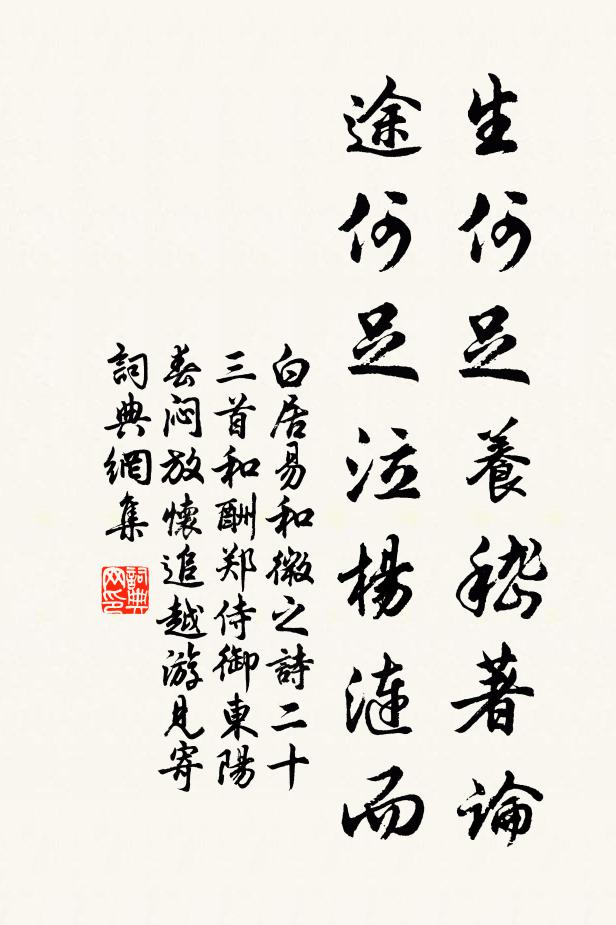 生何足養嵇著論
途何足泣楊漣而
白居易和微之詩二十
三首和酬郑侍御東陽
春闷放懷追越游見寄
詞典網集
詞典网印